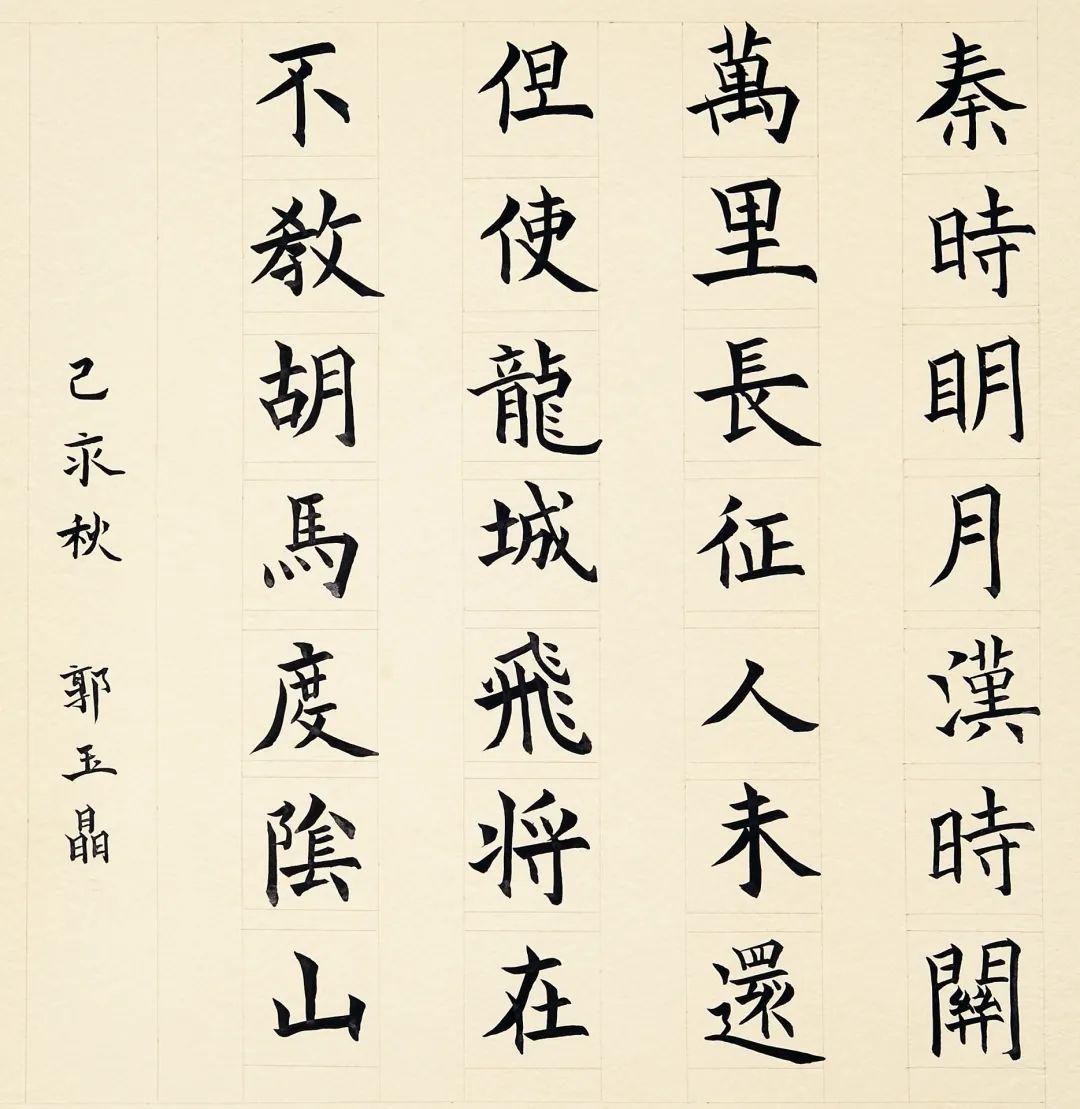 秦時明月漢時關
萬里長征人未還
但使龍城飛将在
不教胡馬度陰山
己亥秋 郭玉晶